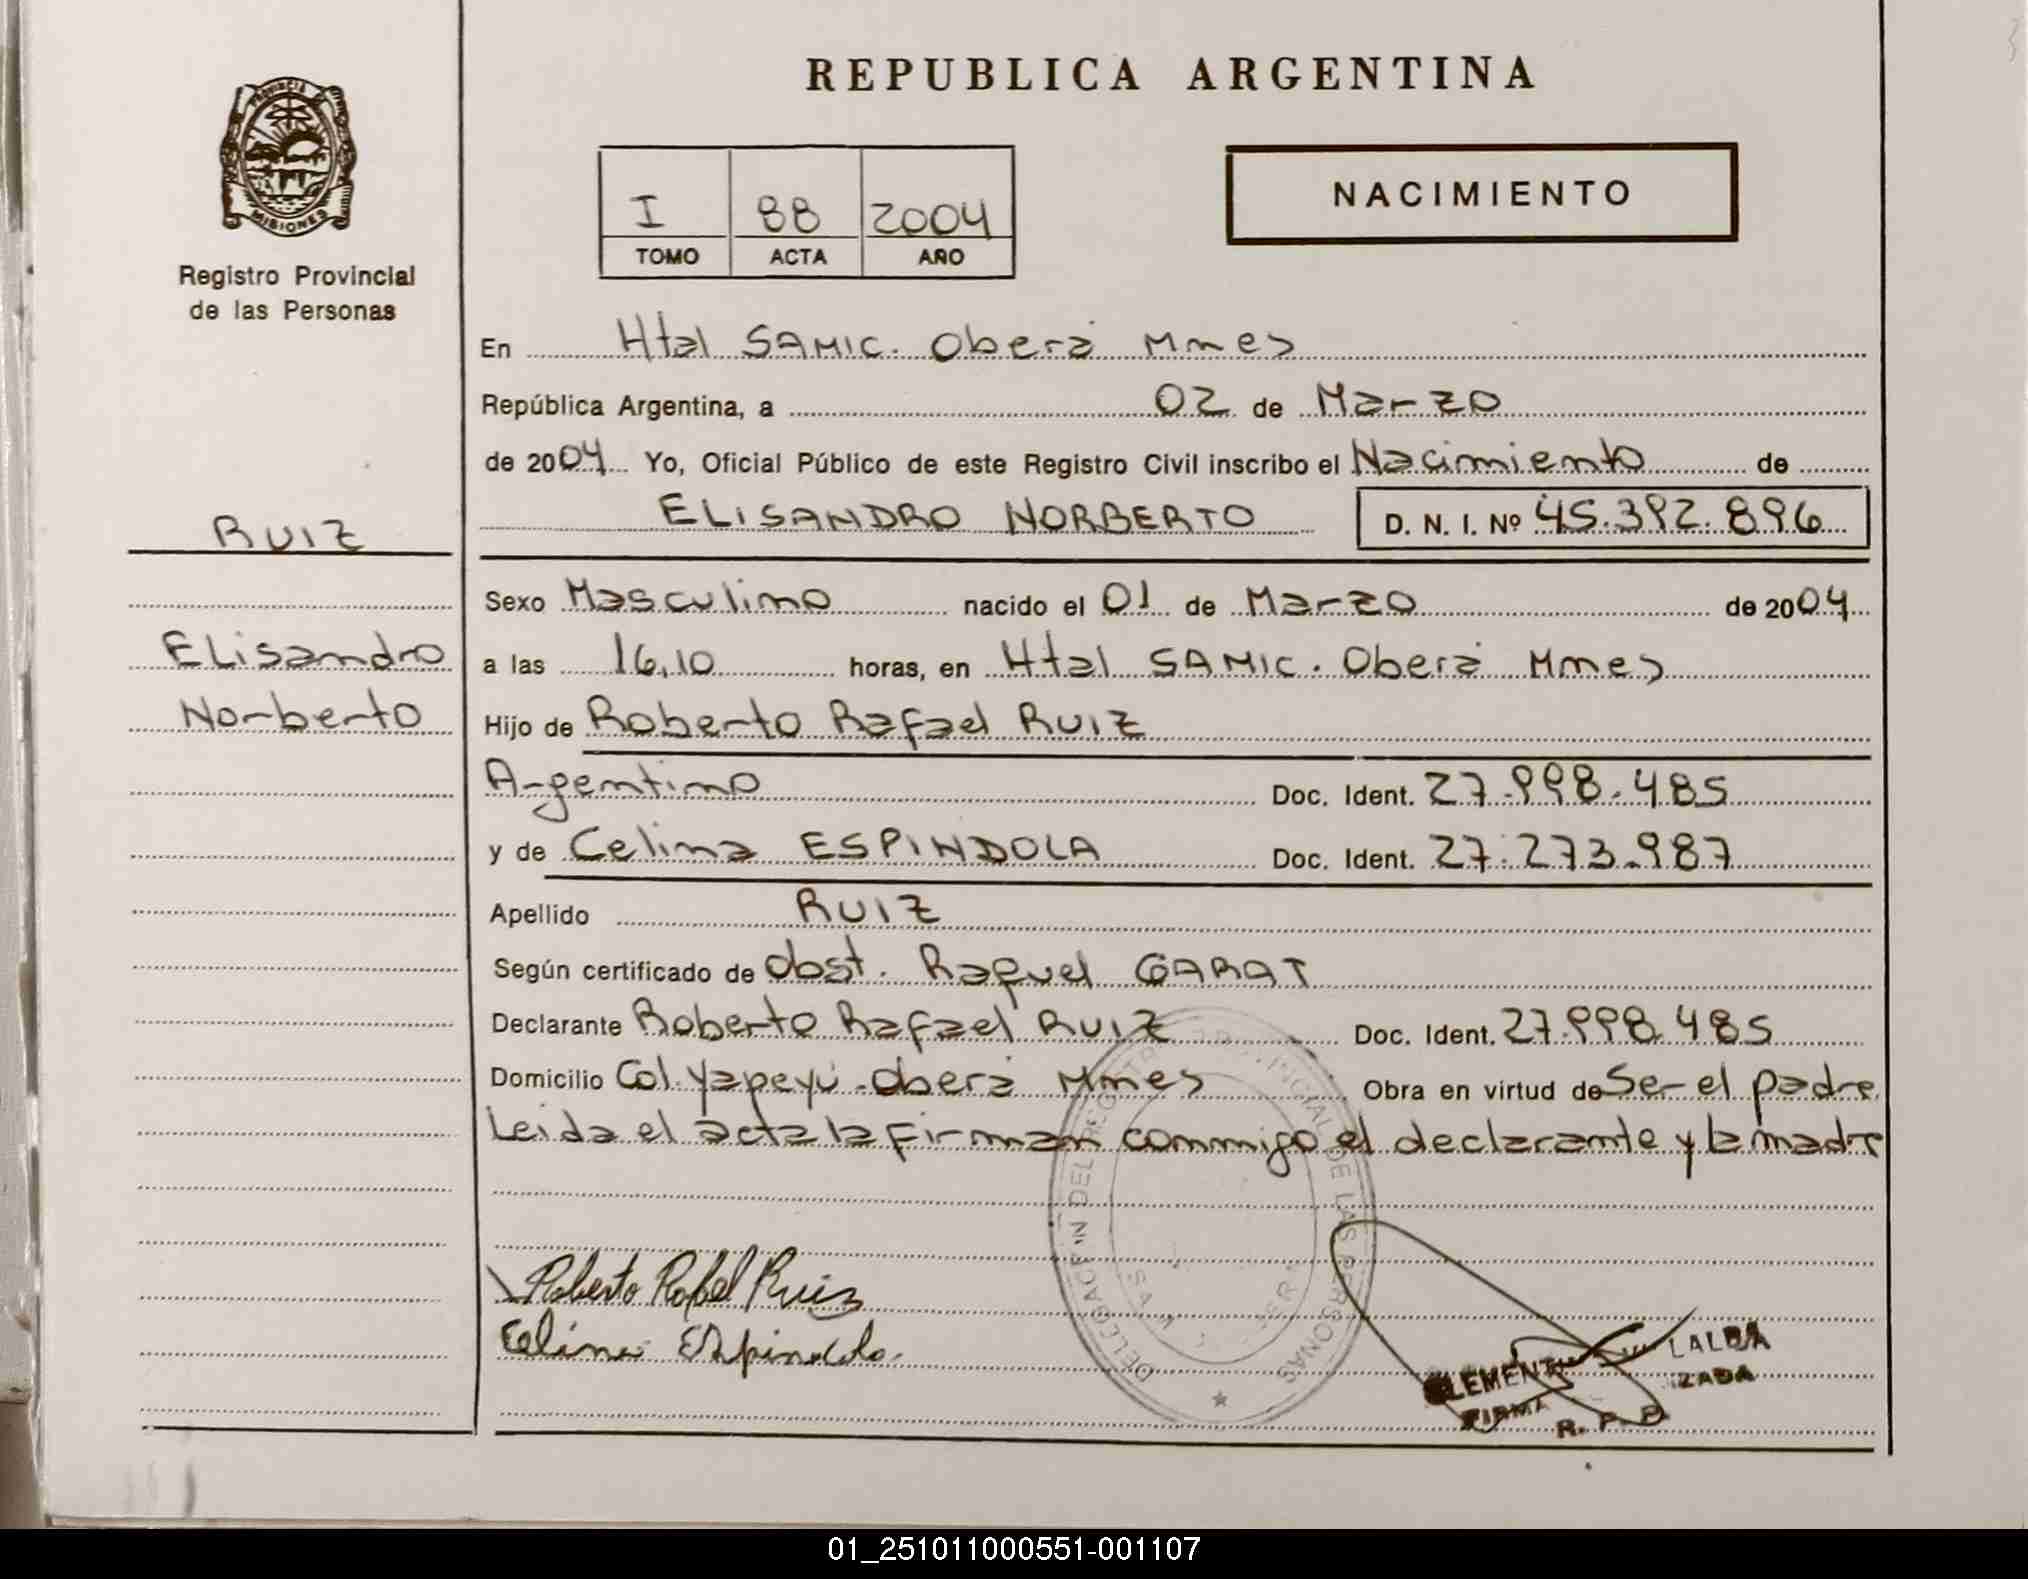 REPUBLICA ARGENTINA
PROVINCIA
MISIONES
Registro Provincial
de las Personas
NACIMIENTO
I 88 2004
TOMO ACTA AÑO
En Htal SAMIC. Oberá Mnes
República Argentina, a 02 de Marzo
de 2004 Yo, Oficial Público de este Registro Civil inscribo el Nacimiento de
ELISANDRO NORBERTO D. N. I. Nº 45.392.896
RUIZ
Elisandro
Norberto
Sexo Masculino nacido el 01 de Marzo de 2004
a las 16,10 horas, en Htal SAMIC. Oberá Mnes
Hijo de Roberto Rafael RUIZ
Argentino Doc. Ident. 27.998.485
y de Celina ESPINDOLA Doc. Ident. 27.273.987
Apellido RUIZ
Según certificado de Obst. Raquel GARAT
Declarante Roberto Rafael RUIZ Doc. Ident. 27.998.485
Domicilio Col. Yapeyú - Oberá Mnes Obra en virtud de Ser el padre.
Leida el acta la firman conmigo el declarante y la madre
Roberto Rafael Ruiz
Celina Espindola.
DELEGACION DEL REGISTRO PROVINCIAL DE LAS PERSONAS
LALBA
FIRMA
R. P. P.
01_251011000551-001107